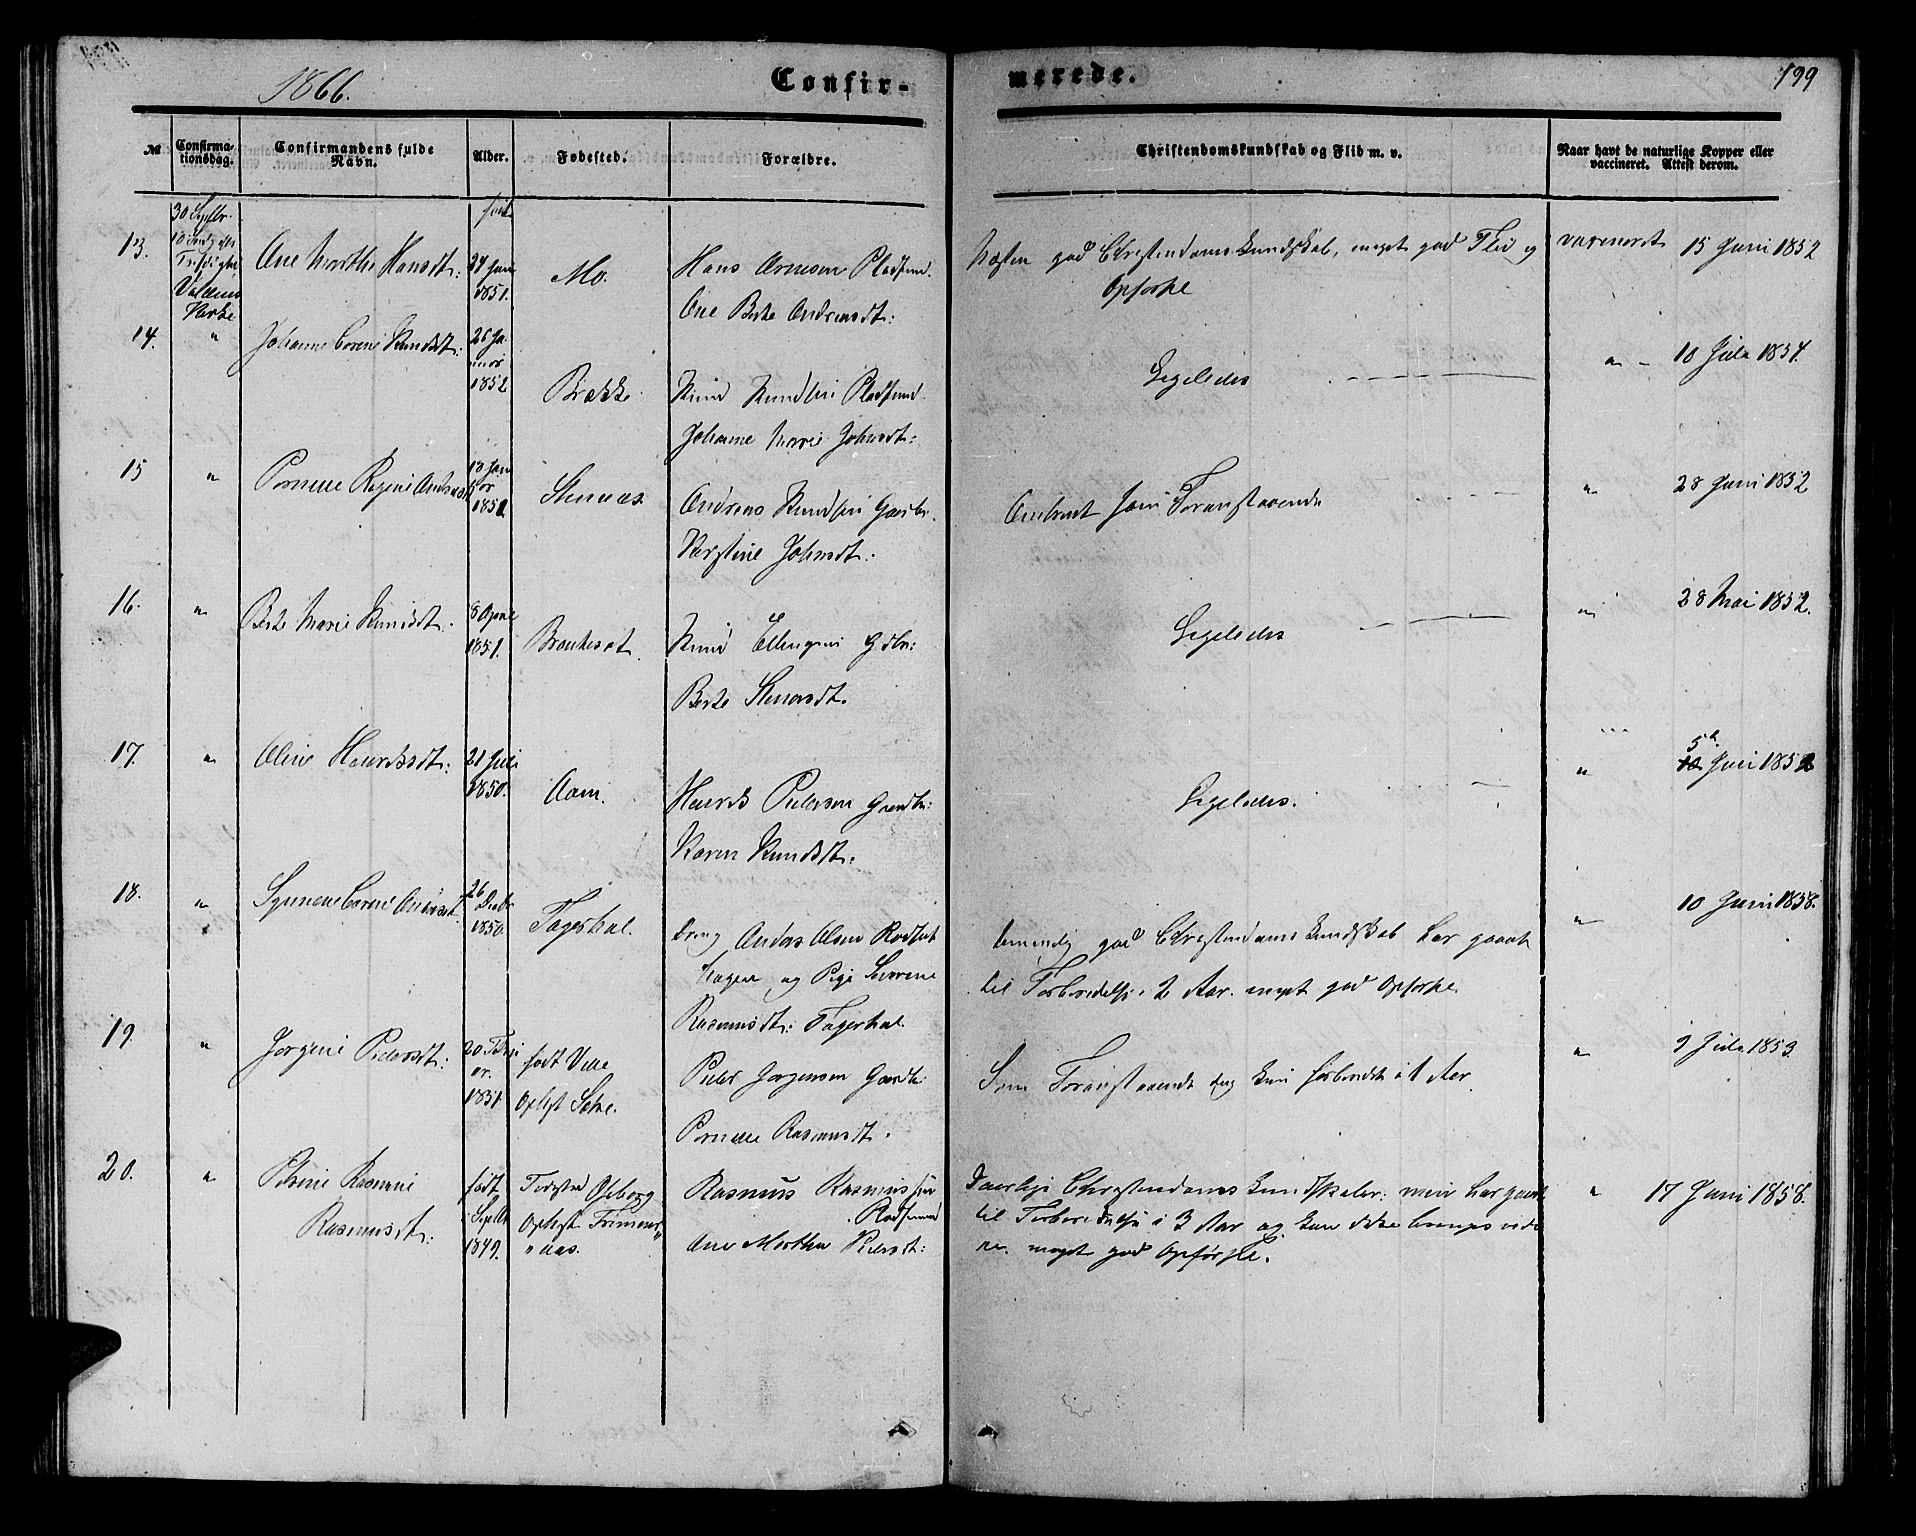 1866.
Confir-
merede.
199
№
Confirma-
tionsdag.
Confirmandens fulde
Navn.
Alder.
Fødested.
Forældre.
Christendomskundskab og Flid m. v.
Naar havt de naturlige Kopper eller
vaccineret. Attest derom.
født
30 Septbr.
13.
Ane Marthe Hansdt:
1851.
Mo.
Hans Arnesen Pladsmd.
Ane Berte Andreasdt:
Næsten god Christendomskundskab, meget god Flid og
Opførsel
vaxeneret
15 Juni 1852
14.
"
Johanne Caroline Knudsdt:
26 Ja-
nuar
1852
Brække
Knud Knudsen Pladsmd.
Johanne Marie Johnsdt:
Ligeledes
"
10 Juli 1854.
15
"
Pernelle Regine Andreasdt
1851
Stenaas
Andreas Knudsen Gaardbr.
Kirstine Johnsdt:
Omtrent som Foranstaaende
"
28 Juni 1852
16.
"
Berte Marie Knudsdt.
8 April
1851.
Knud Ellingsen Gdbr:
Berte Stenersdt.
Ligeledes
"
28 Mai 1852.
17.
"
Oline Henriksdt:
21 Juli
1850.
Aam.
Henrik Pedersen Gaardbr:
Karen Knudsdt:
Ligeledes.
"
5
Juni 1852
18.
"
Synnøve Carine Andersdt.
26
Decbr
1850.
Fagerhol.
Dreng Anders Olsen Rødset
Hagen og Pige Severine
Rasmusdt: Fagerhol.
temmelig god Christendomskundskab har gaaet
til Forberedelse i 2 Aar. meget god Opførsel
"
10 Juni 1858.
19.
"
Jørgine Pedersdt:
20 Febru
ar.
1851.
født Velle
Oplagt Sætre.
Peder Jørgensen Gaardbr:
Pernelle Rasmusdt.
Som Foranstaaende dog kun forberedt i 1 Aar
"
9 Juli 1853.
20.
"
Petrine Rasmine
Rasmusdt:
født
Septbr
1849.
Fødested Osborg
"aas.
Rasmus Rasmussen
Ane Marthe Pedersdt:
Daarlige Christendoms Kundskaber: men har gaaet
til Forberedelse i 3 Aar og kan ikke bringes vide
re. meget god Opførsel.
"
17 Juni 1858.